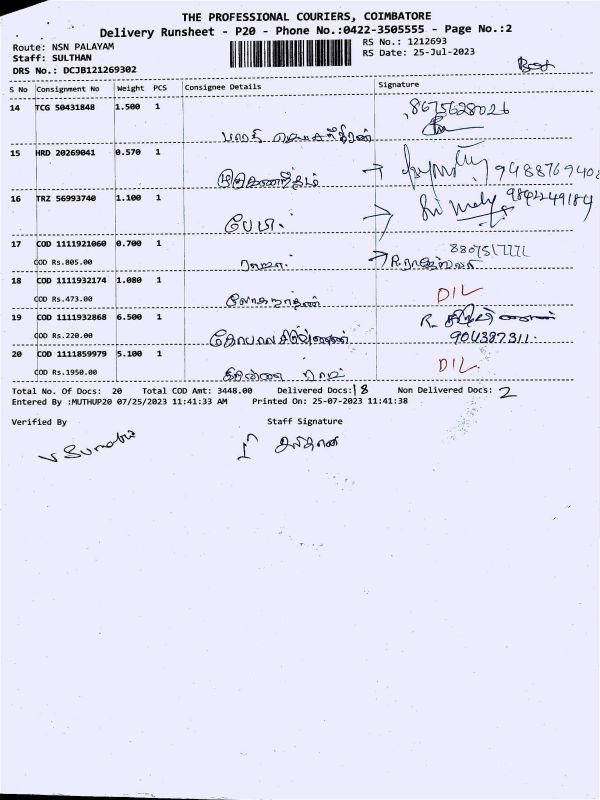 THE PROFESSIONAL COURIERS, COIMBATORE
Delivery Runsheet - P20 - Phone No.:0422-3505555 - Page No.:2
Route: NSN PALAYAM
RS No.: 1212693
Staff: SULTHAN
RS Date: 25-Jul-2023
DRS No.: DCJB121269302
S No Consignment No Weight PCS Consignee Details Signature
14 TCG 50431848 1.500 1
8675628026
15 HRD 20269041 0.570 1
16 TRZ 56993740 1.100 1
9842249184
பேபி
17 COD 1111921060 0.700 1
COD Rs.805.00
ராஜா
18 COD 1111932174 1.080 1
DIL
COD Rs.473.00
லோகநாதன்
19 COD 1111932868 6.500 1
R.
COD Rs.220.00
904387311
20 COD 1111859979 5.100 1
DIL
COD Rs.1950.00
Total No. Of Docs: 20 Total COD Amt: 3448.00 Delivered Docs: 18 Non Delivered Docs: 2
Entered By :MUTHUP20 07/25/2023 11:41:33 AM Printed On: 25-07-2023 11:41:38
Verified By Staff Signature